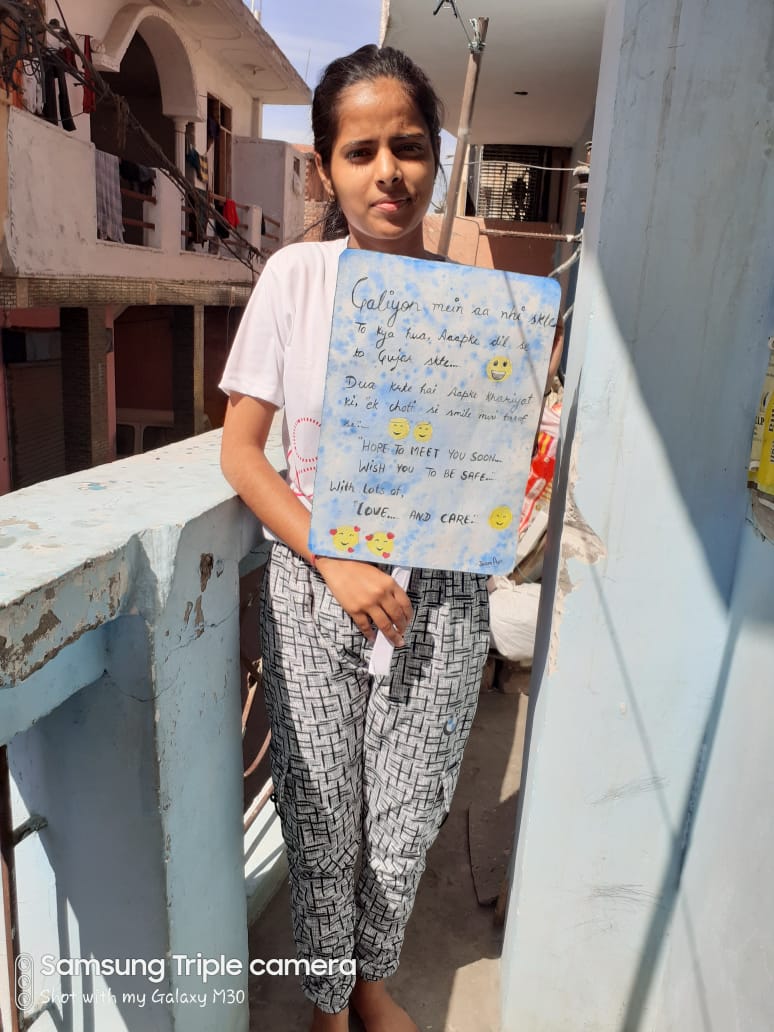 Galiyon mein aa nhi skte
To kya hua, Aaapke dil se
to Gujar skte...
Dua krke hai Aapke khariyat
ki, ek choti si smile meri taraf
se:-
"HOPE TO MEET YOU SOON...
WISH YOU TO BE SAFE...
With lots of,
"LOVE... AND CARE."
Samsung Triple camera
Shot with my Galaxy M30